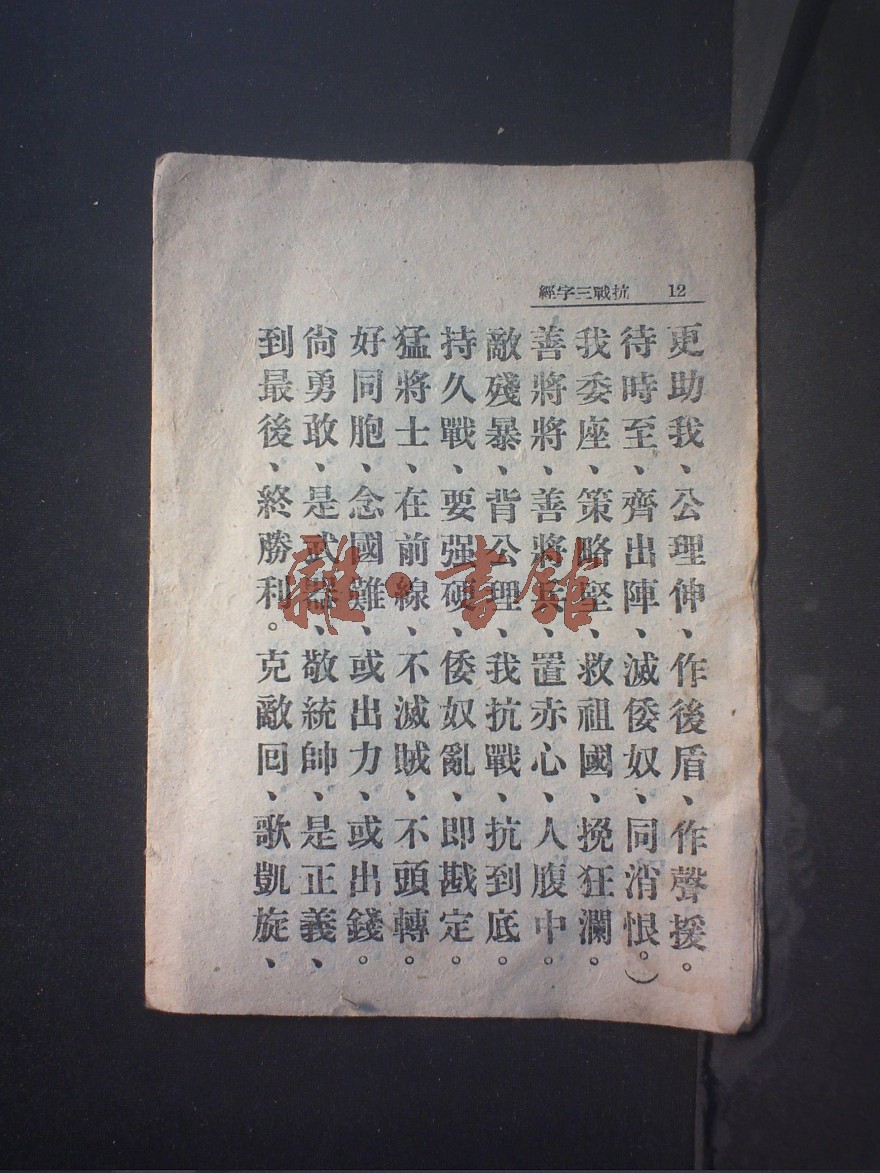 12 抗戰三字經
更助我、公理伸、作後盾、作聲援。
待時至、齊出陣、滅倭奴、同消恨。）
我委座、策略堅、救祖國、挽狂瀾。
善將將、善將兵、置赤心、人腹中。
敵殘暴、背公理、我抗戰、抗到底。
持久戰、要强硬、倭奴亂、即戡定。
猛將士、在前線、不滅賊、不頭轉。
好同胞、念國難、或出力、或出錢。
尙勇敢、是武器、敬統帥、是正義、
到最後、終勝利。克敵回、歌凱旋、
雜·書館